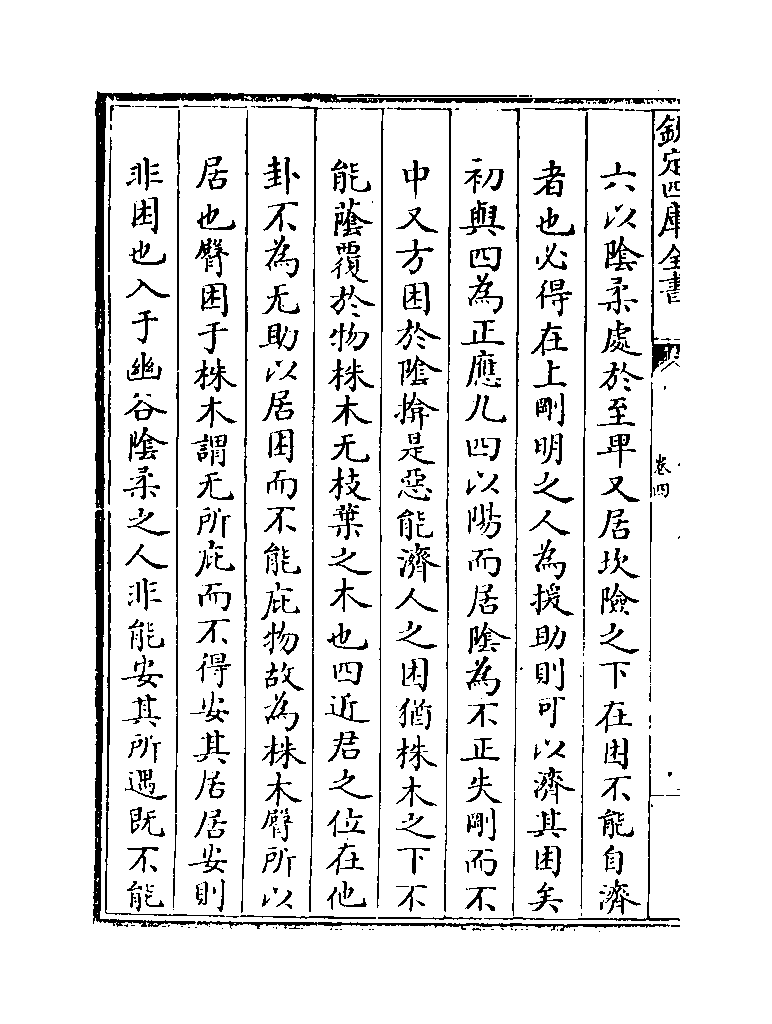 欽定四庫全書
卷四
六以陰柔處於至卑又居坎險之下在困不能自濟
者也必得在上剛明之人為援助則可以濟其困矣
初與四為正應九四以陽而居陰為不正失剛而不
中又方困於陰揜是惡能濟人之困猶株木之下不
能蔭覆於物株木无枝葉之木也四近君之位在他
卦不為无助以居困而不能庇物故為株木臀所以
居也臀困于株木謂无所庇而不得安其居居安則
非困也入于幽谷陰柔之人非能安其所遇既不能